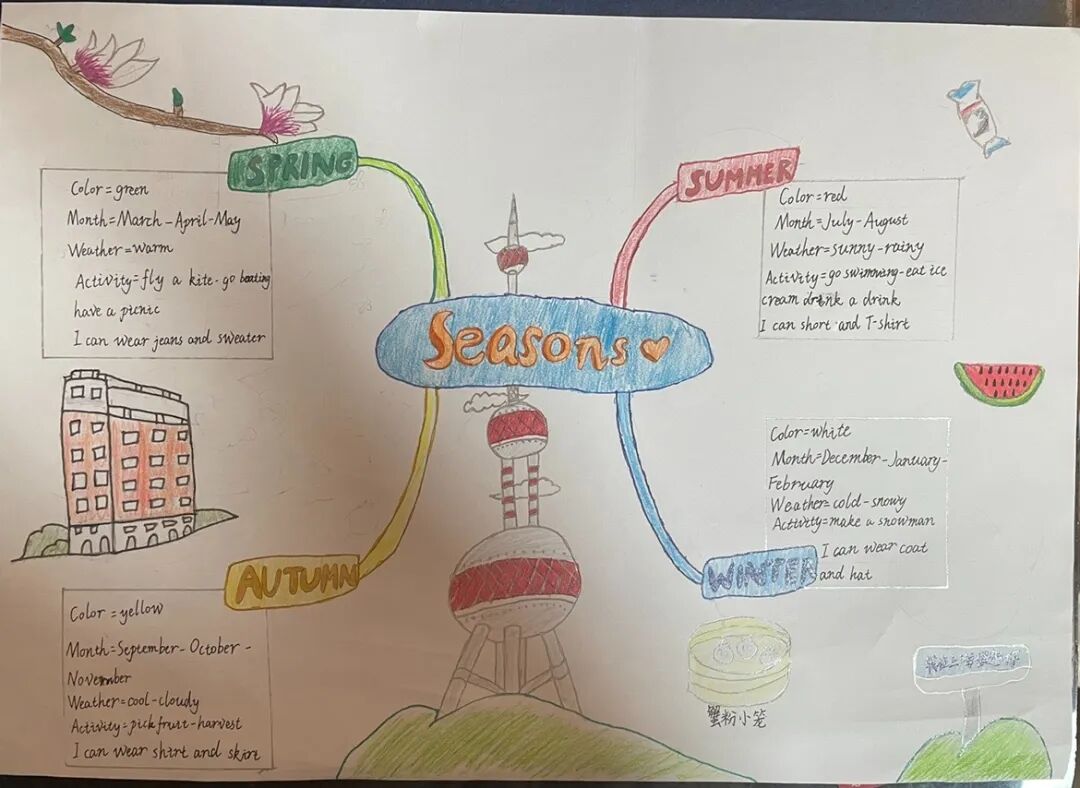 Seasons
SPRING
Color=green
Month=March-April-May
Weather=warm
Activity=fly a kite-go boating
have a picnic
I can wear jeans and sweater
SUMMER
Color=red
Month=July-August
Weather=sunny-rainy
Activity=go swimming-eat ice
cream drink a drink
I can short and T-shirt
AUTUMN
Color=yellow
Month=September-October-
November
Weather=cool-cloudy
Activity=pick fruit-harvest
I can wear shirt and skirt
Color=white
Month=December-January-
February
Weather=cold-snowy
Activity=make a snowman
WINTER
I can wear coat
and hat
蟹粉小笼